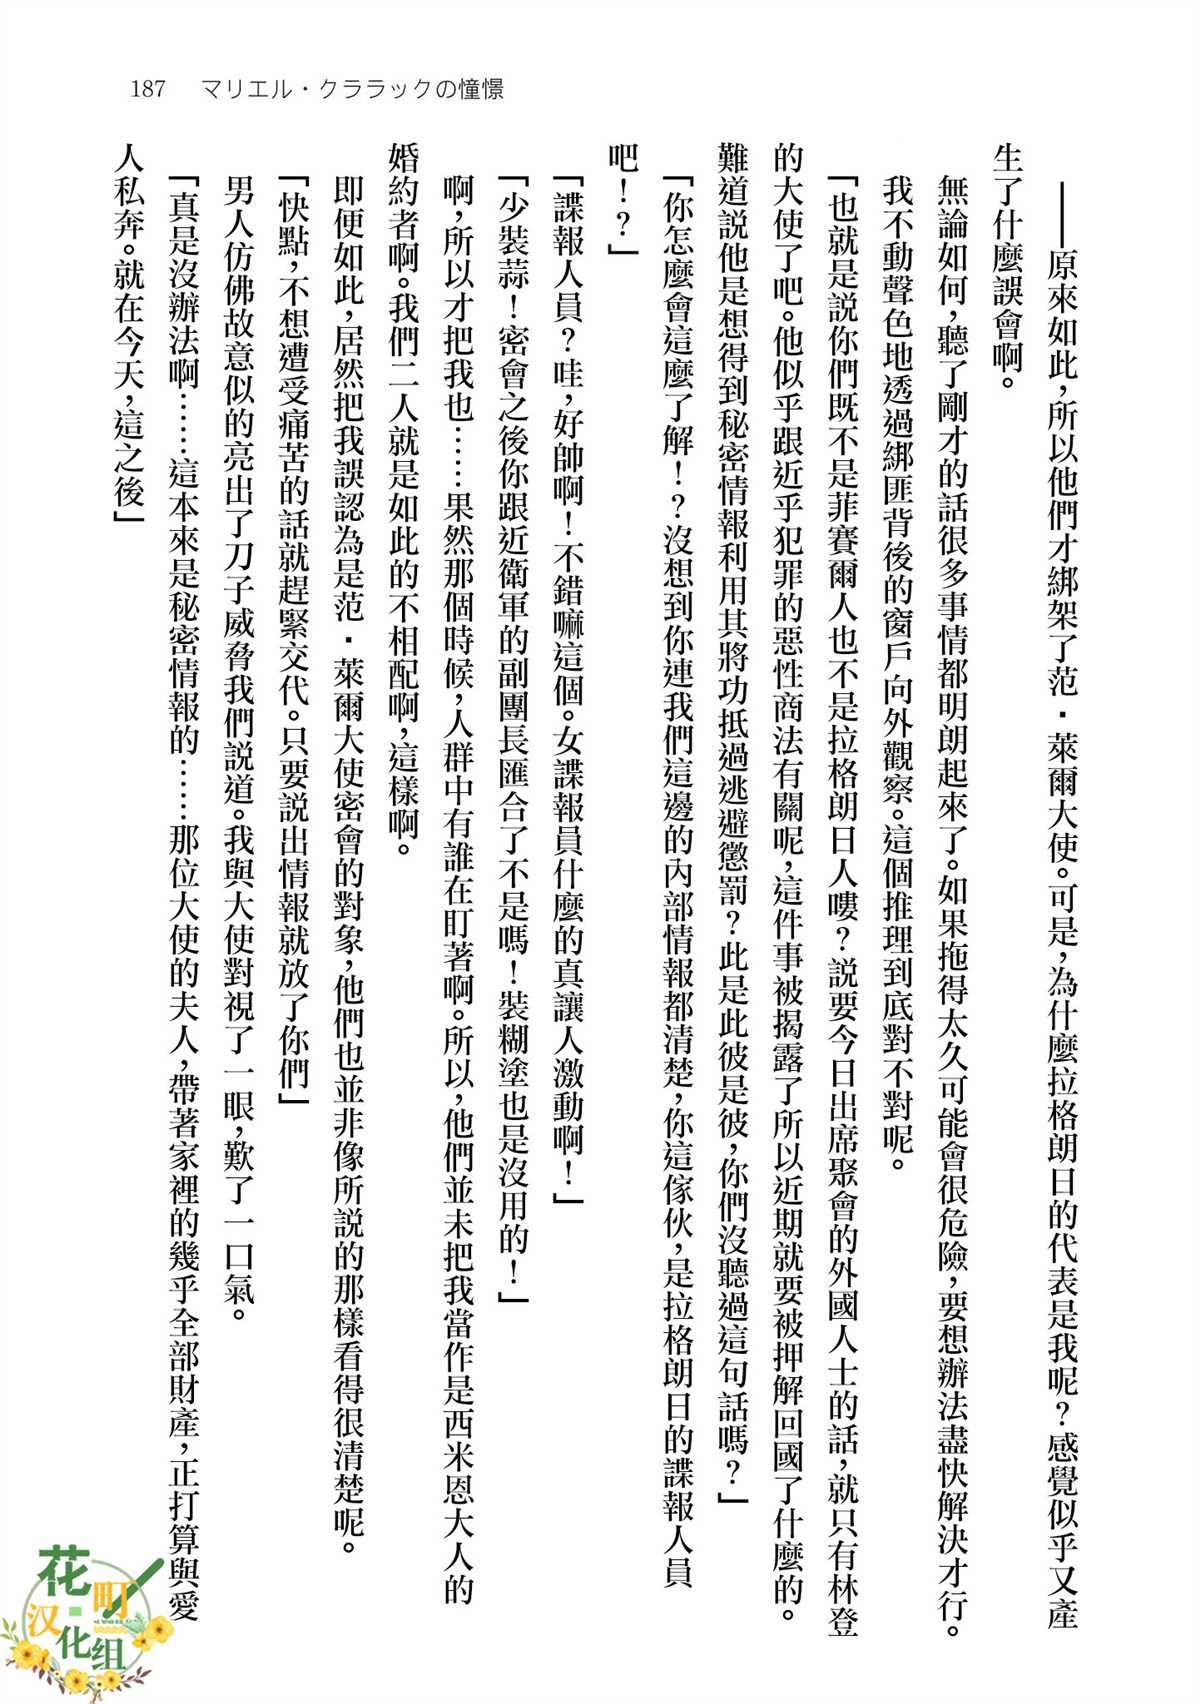 187 マリエル・クララックの憧憬
——原來如此，所以他們才綁架了范・萊爾大使。可是，為什麼拉格朗日的代表是我呢？感覺似乎又產
生了什麼誤會啊。
無論如何，聽了剛才的話很多事情都明朗起來了。如果拖得太久可能會很危險，要想辦法盡快解決才行。
我不動聲色地透過綁匪背後的窗戶向外觀察。這個推理到底對不對呢。
「也就是說你們既不是菲賽爾人也不是拉格朗日人嘍？說要今日出席聚會的外國人士的話，就只有林登
的大使了吧。他似乎跟近乎犯罪的惡性商法有關呢，這件事被揭露了所以近期就要被押解回國了什麼的。
難道說他是想得到秘密情報利用其將功抵過逃避懲罰？此是此彼是彼，你們沒聽過這句話嗎？」
「你怎麼會這麼了解！？沒想到你連我們這邊的內部情報都清楚，你這傢伙，是拉格朗日的諜報人員
吧！？」
「諜報人員？哇，好帥啊！不錯嘛這個。女諜報員什麼的真讓人激動啊！」
「少裝蒜！密會之後你跟近衛軍的副團長匯合了不是嗎！裝糊塗也是沒用的！」
啊，所以才把我也……果然那個時候，人群中有誰在盯著啊。所以，他們並未把我當作是西米恩大人的
婚約者啊。我們二人就是如此的不相配啊，這樣啊。
即便如此，居然把我誤認為是范・萊爾大使密會的對象，他們也並非像所說的那樣看得很清楚呢。
「快點，不想遭受痛苦的話就趕緊交代。只要說出情報就放了你們」
男人仿佛故意似的亮出了刀子威脅我們說道。我與大使對視了一眼，歎了一口氣。
「真是沒辦法啊……這本來是秘密情報的……那位大使的夫人，帶著家裡的幾乎全部財產，正打算與愛
人私奔。就在今天，這之後」
花町
汉化组